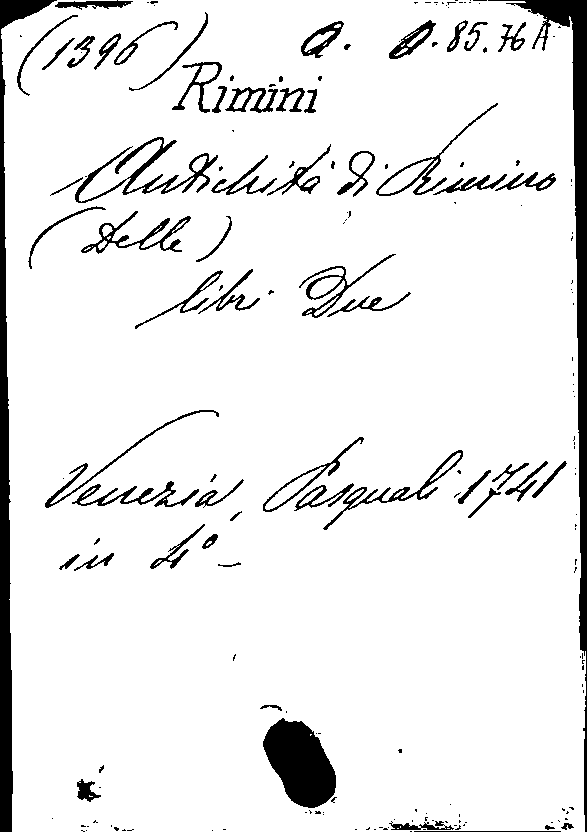 (1396) a. a. 85. 76 A
Rimini
Antichità di Rimino
(Delle)
libri Due
Venezia, Pasquali 1741
in 4° -